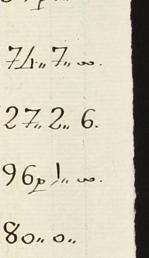 74〃7〃∞.
27〃2〃6.
96p 1〃∞.
80〃0〃